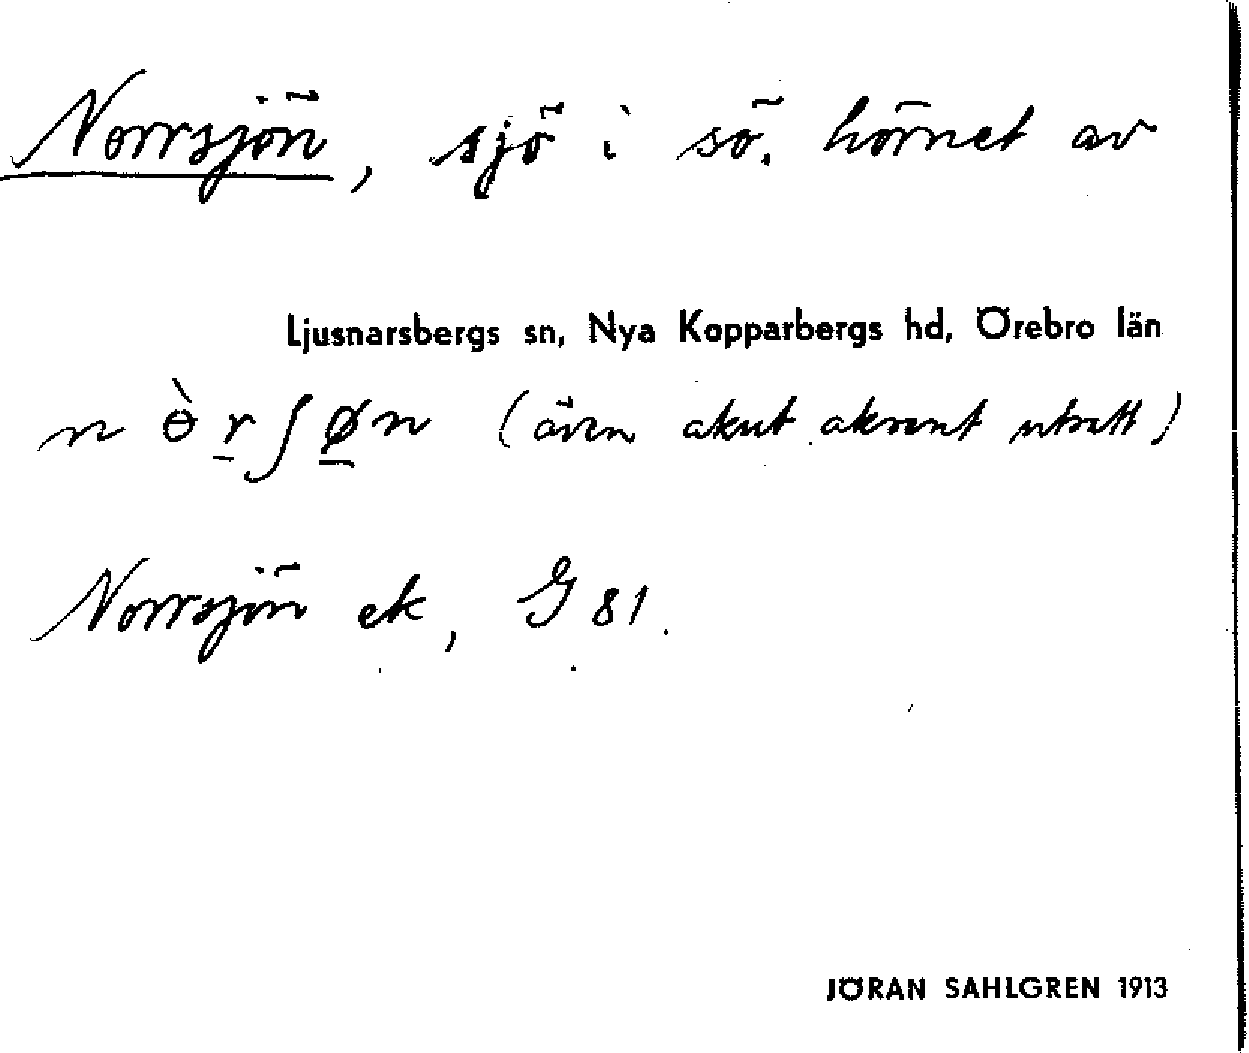 Norrsjön, sjö i sö. hörnet av
Ljusnarsbergs sn, Nya Kopparbergs hd, Örebro län
n ɵ̀ r̲ ʃ ø̲ n (även akut akcent utsatt)
Norrsjön ek, G 81.
JÖRAN SAHLGREN 1913